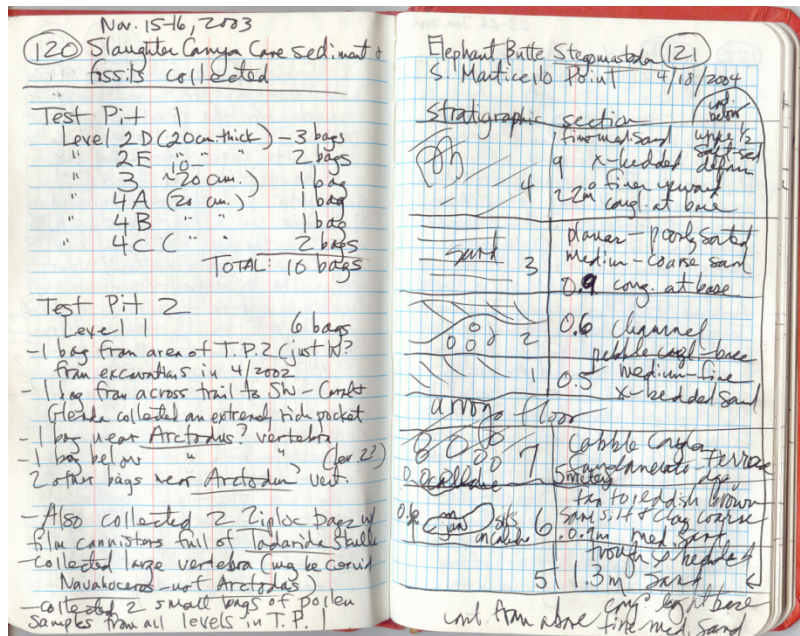 Nov. 15-16, 2003
120 Slaughter Canyon Cave sediment &
fossils collected
Test Pit 1
Level 2D (20cm. thick) - 3 bags
" 2E " 10 " 2 bags
" 3 ~20 cm.) 1 bag
" 4A (20 cm.) 1 bag
" 4B " " 1 bag
" 4C ( " " 2 bags
TOTAL: 10 bags
Test Pit 2
Level 1 6 bags
-1 bag from area of T.P.2 (just N?
from excavations in 4/2002
-1 bag from across trail to SW -
Glenda collected an extremely rich pocket
-1 bag near Arctodus? vertebra
-1 bag below " "
2 other bags near Arctodus? vert.
-Also collected 2 Ziploc bags w/
film cannisters full of Tadarida skulls
-collected large vertebra (may be cervid
Navahoceros - not Arctodus)
-collected 2 small bags of pollen
samples from all levels in T.P. 1
Elephant Butte Stegomastodon 121
S. Monticello Point 4/18/2004
stratigraphic section
cont. below
fine-med sand upper 1/2
x-bedded
4 2.2m finer upward
congl. at base
planar - poorly sorted
sand 3 medium - coarse sand
0.9 cong. at base
2 0.6 channel
pebble congl - base
1 0.5 medium - fine
x-bedded sand
arroyo floor
7 cobble congl
terrace
5 meters
tan to reddish brown
0.9 6 sand silt & clay coarse
med. sand
trough x-bedded
5 1.3m sand
cont. from above cong at base
fine med. sand